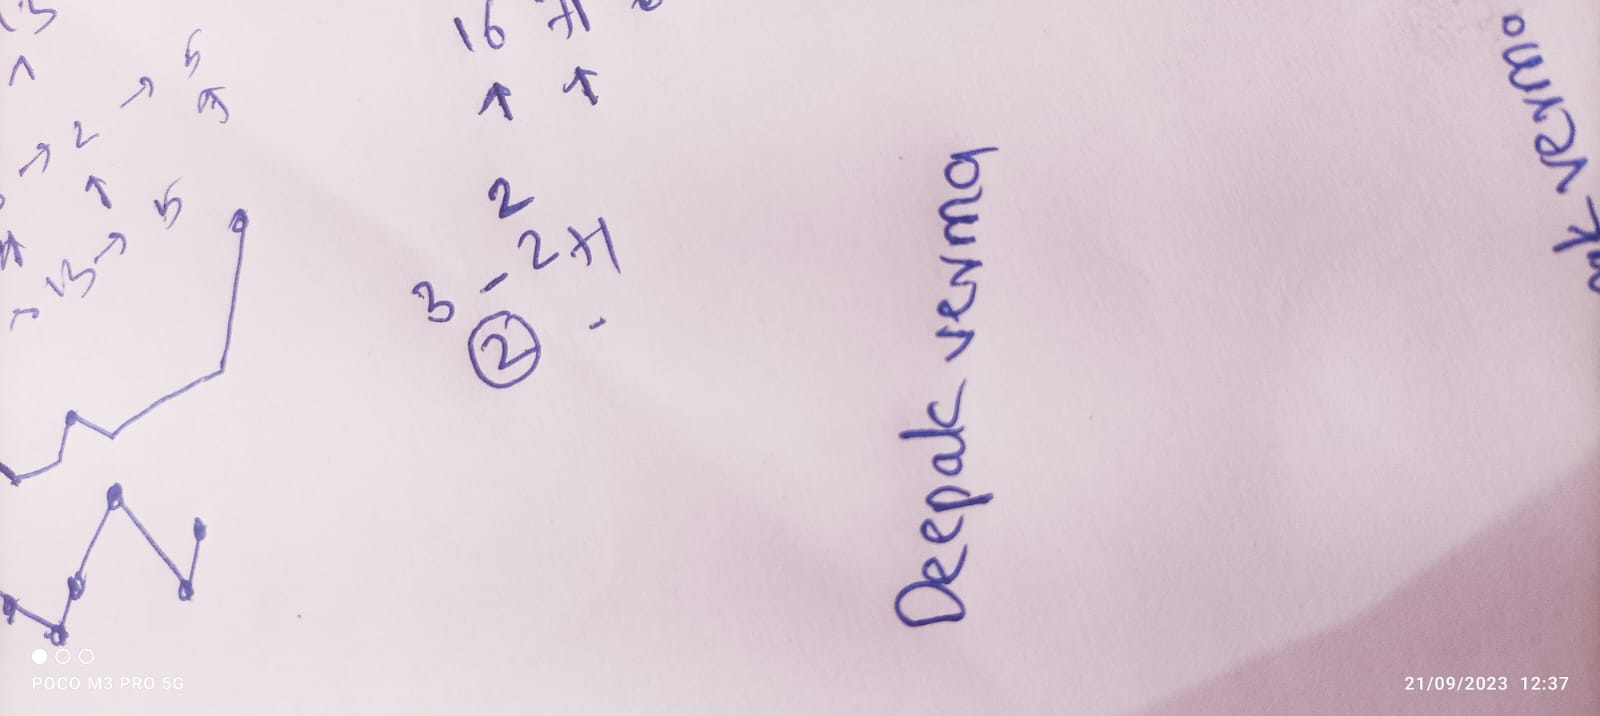 13
5
→ 2 →
→ 13 → 5
16 +1
2
3 - 2 +1
2
Deepak verma
verma
POCO M3 PRO 5G
21/09/2023 12:37